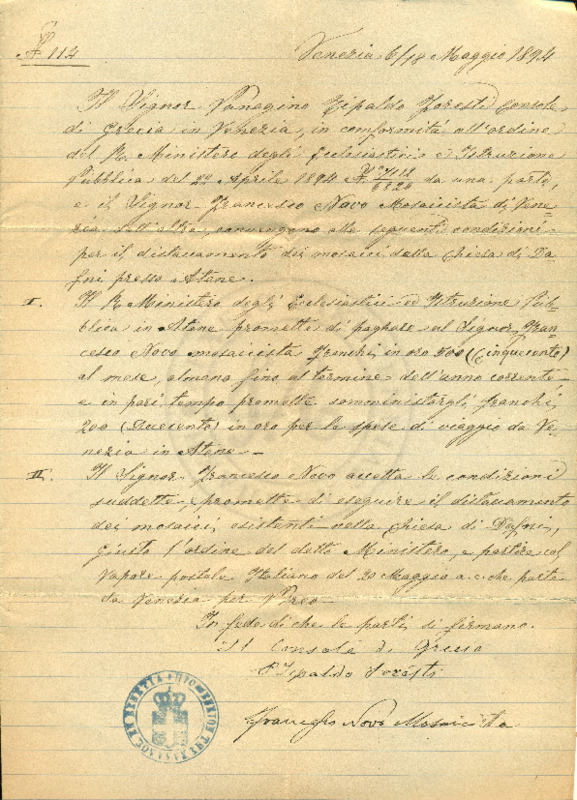 N° 114
Venezia 6/18 Maggio 1894
Il Signor Panagino Tipaldo Foresti Console
di Grecia in Venezia, in conformità all'ordine
del R. Ministero degli Ecclesiastici e Istruzione
Pubblica del 22 Aprile 1894 N° 7112/6820 da una parte,
e il Signor Francesco Novo Mosaicista di Vene-
zia dall'altra, convengono alle seguenti condizioni
per il distaccamento dei mosaici della Chiesa di Da-
fni presso Atene.
I. Il R. Ministero degli Ecclesiastici ed Istruzione Pub-
blica in Atene promette di paghare al Signor Fran-
cesco Novo mosaicista franchi in oro 500 (Cinquecento)
al mese, almeno fino al termine dell'anno corrente
e in pari tempo promette somministargli franchi
200 (Duecento) in oro per le spese di viaggio da Ve-
nezia in Atene –
II. Il Signor Francesco Novo accetta le condizioni
suddette e promette di eseguire il distaccamento
dei mosaici esistenti nella Chiesa di Dafni,
giusto l'ordine del detto Ministero, e partire col
Vapore postale Italiano del 20 Maggio a.c. che parte
da Venezia per Pireo –
In fede di che le parti si firmano.
Il Console di Grecia
P. Tipaldo Foresti
Francesco Novo Mosaicista
ΠΡΟΞΕΝΕΙΟΝ ΤΗΣ ΕΛΛΑΔΟΣ ΕΝ ΒΕΝΕΤΙΑ